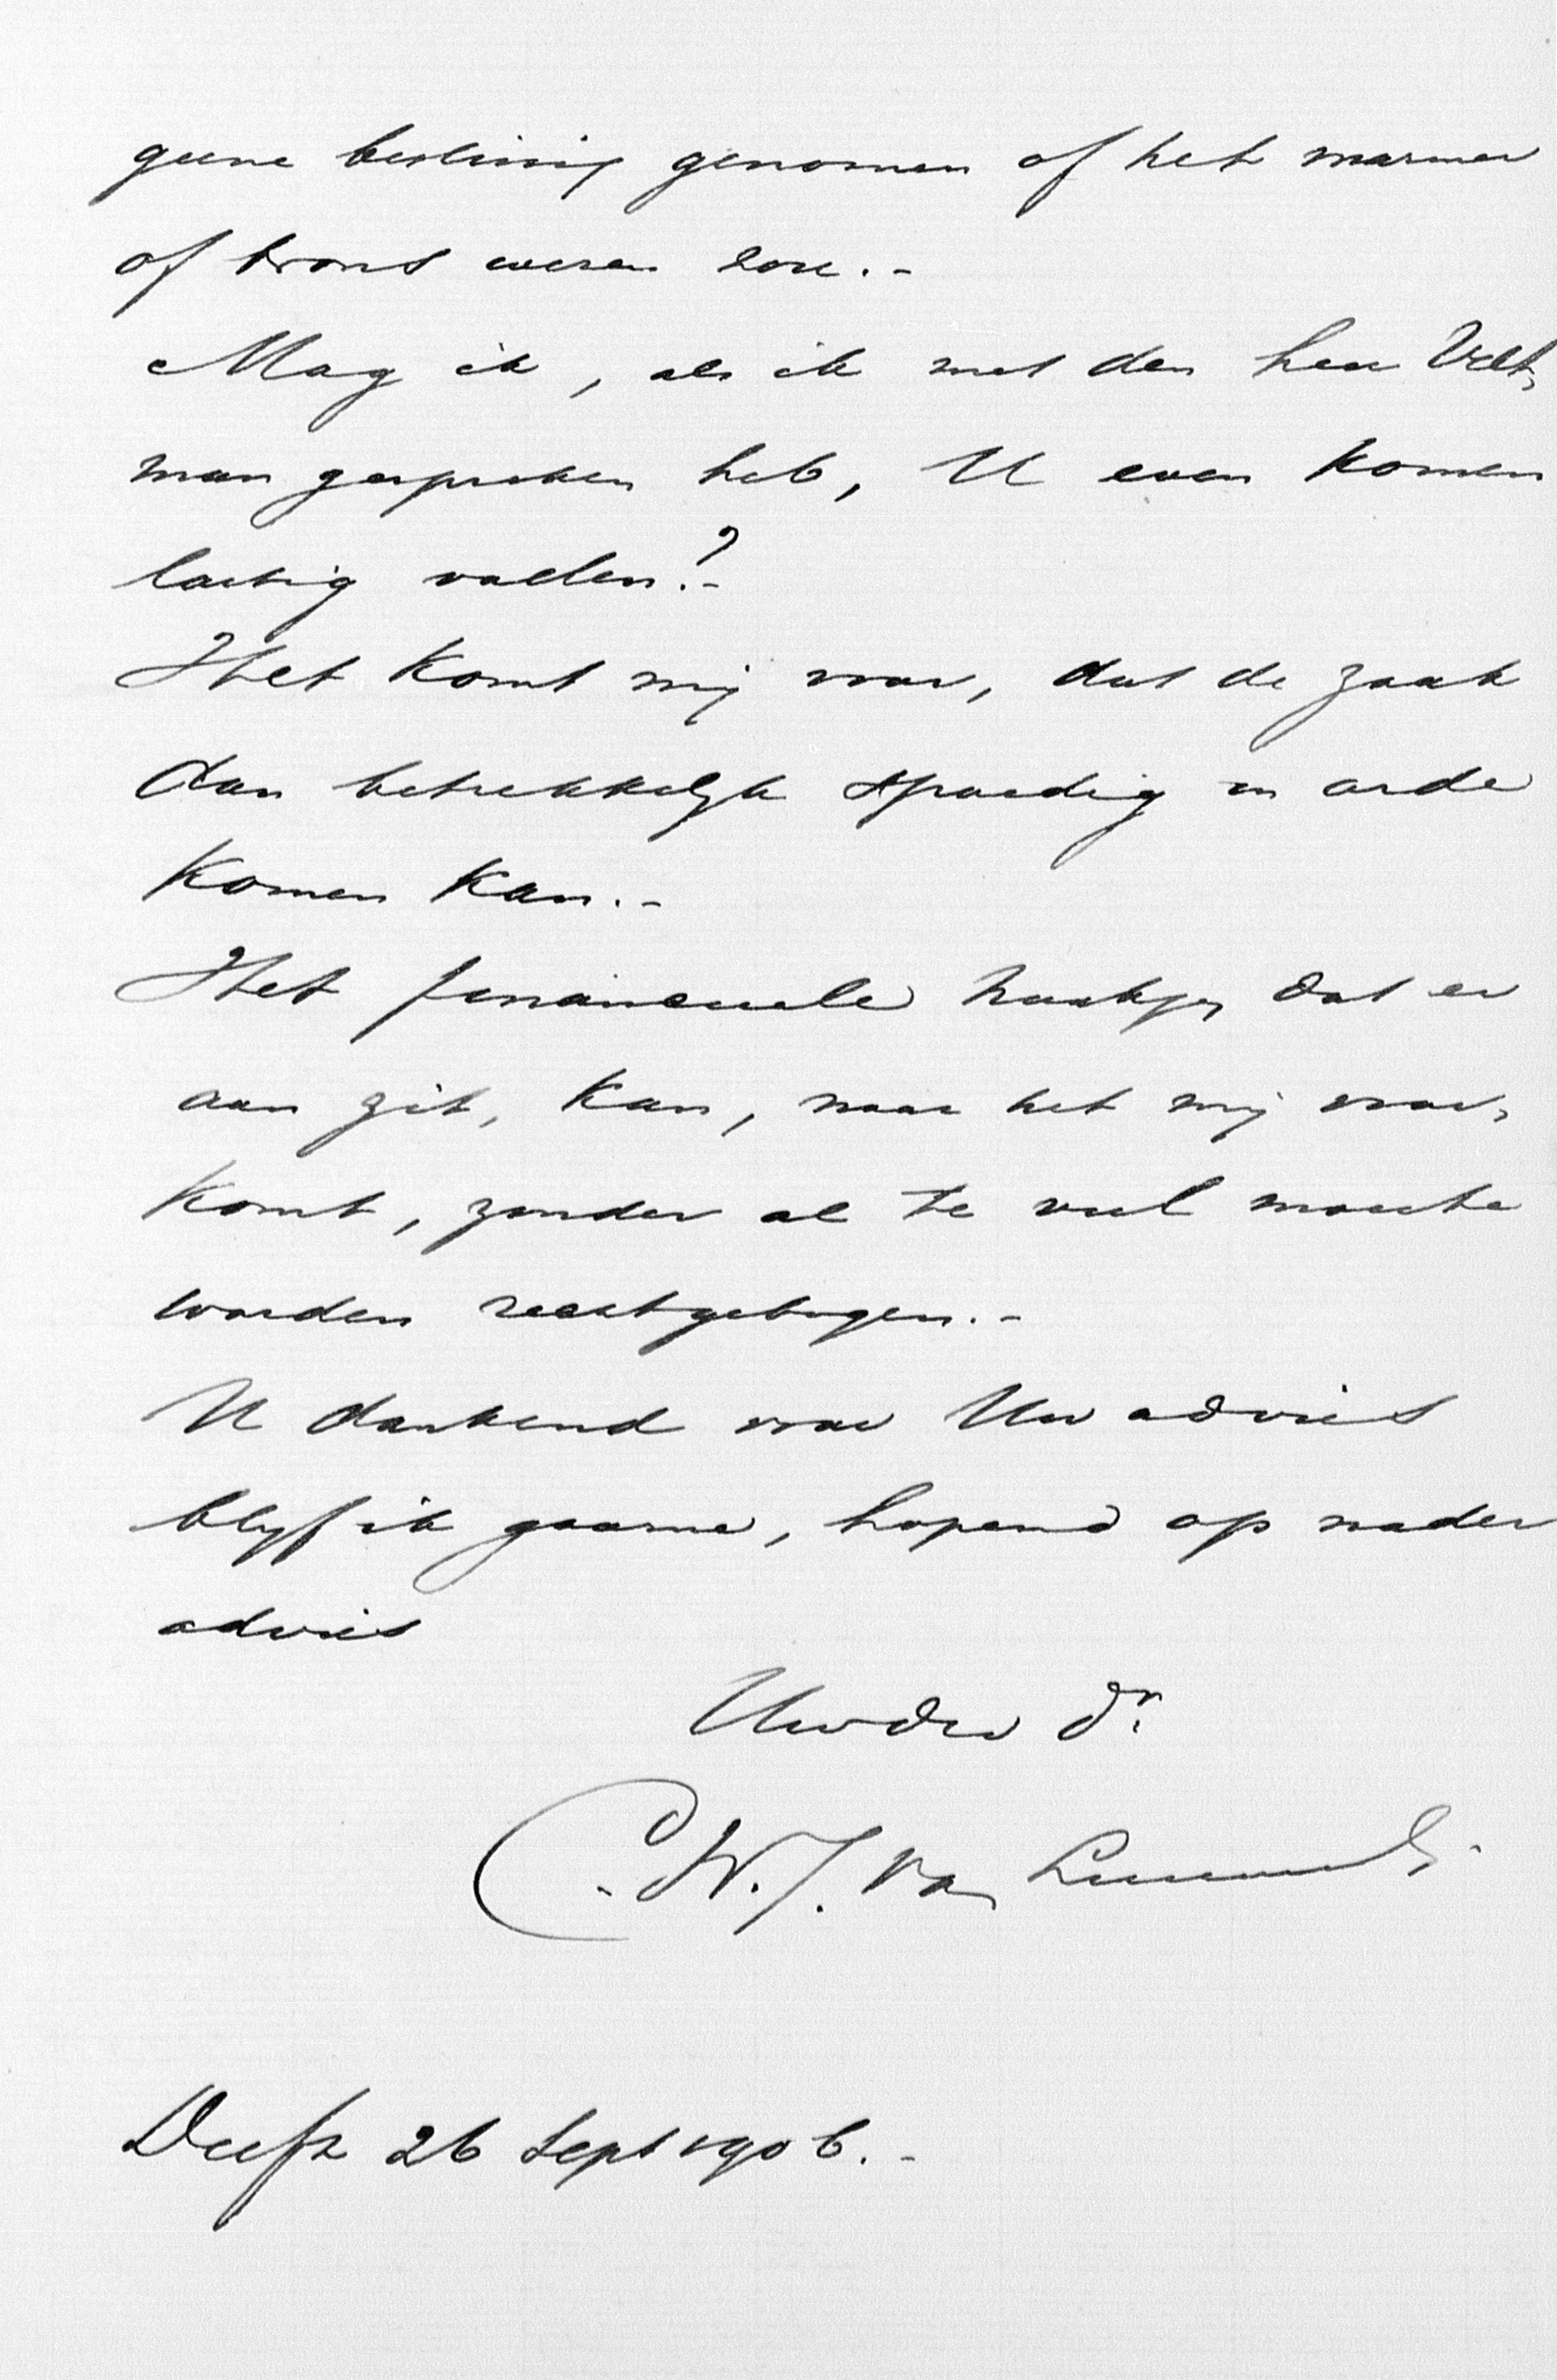 geene beslissing genomen of het marmer
of brons wezen zou.-
Mag ik, als ik met den heer Velt-
man gesproken heb, U even komen
lastig vallen?-
Het komt mij voor, dat de zaak
dan betrekkelijk spoedig in orde
komen kan.-
Het financieele haakje, dat er
aan zit, kan, naar het mij voor-
komt, zonder al te veel moeite
worden rechtgebogen.-
U dankend voor Uw advies
blijf ik gaarne, hopend op nader
advies
Uwdw dr.
C.W.J. van
Delft 26 Sept 1906.-